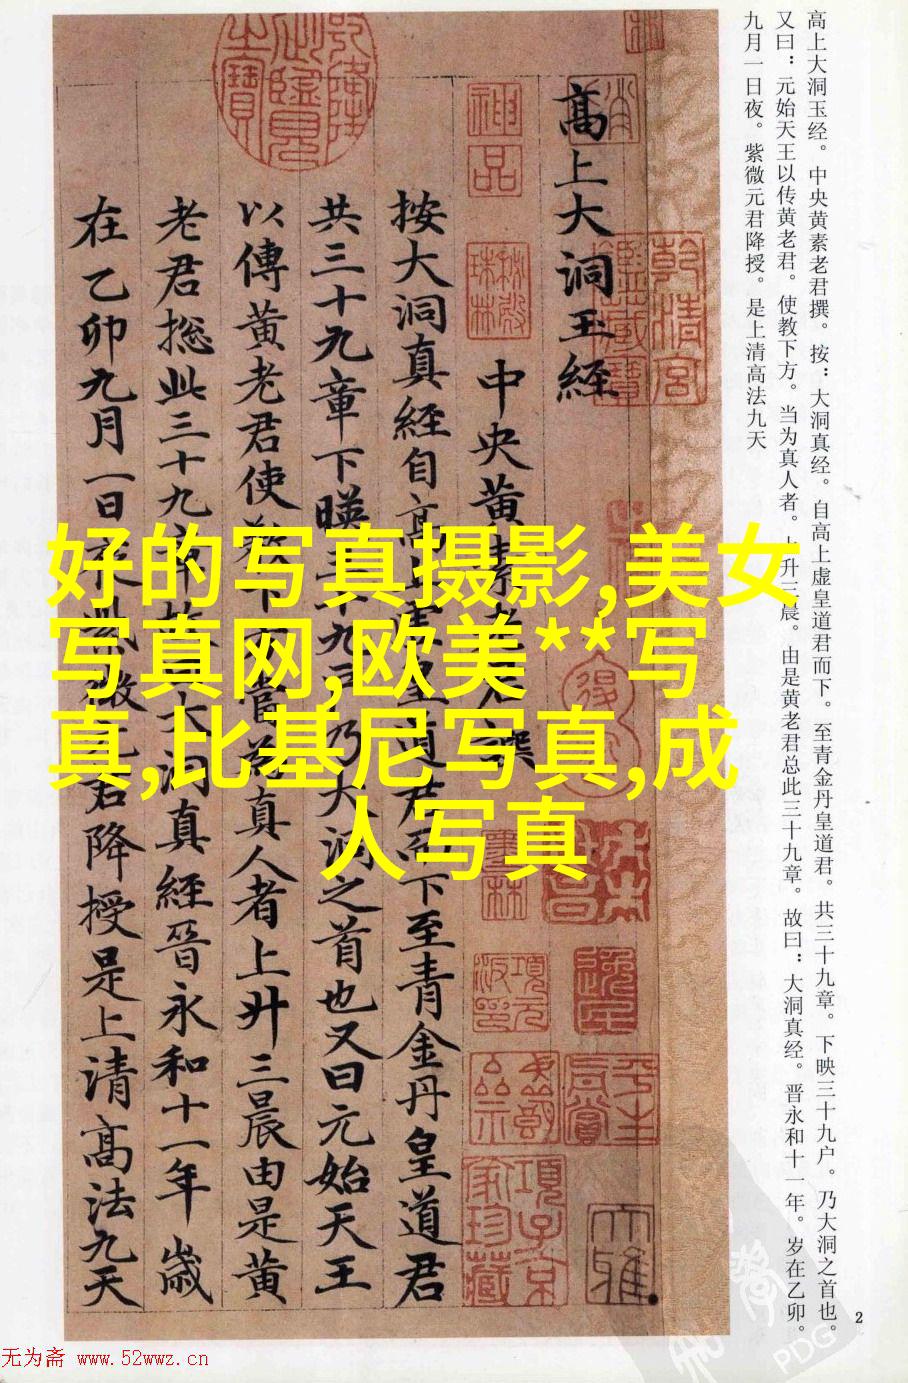 高上大洞玉经。中央黄素老君撰。按：大洞真经。自高上虚皇道君而下。至青金丹皇道君。共三十九章。下映三十九户。乃大洞之首也。
又曰：元始天王以传黄老君。使教下方。当为真人者。上升三晨。由是黄老君总此三十九章。故曰：大洞真经。晋永和十一年。岁在乙卯。
九月一日夜。紫微元君降授。是上清高法九天
高上大洞玉經
中央黃素老君撰
按大洞真經自高上虛皇道君而下至青金丹皇道君
共三十九章下暎三十九户乃大洞之首也又曰元始天王
以傳黃老君使教下方當為真人者上升三晨由是黃
老君捴此三十九章故曰大洞真經晉永和十一年歲
在乙卯九月一日夜紫微元君降授是上清高法九天
神品
乾清宮鑑藏寶
項子京家珍藏
平生真賞
大雅
好的写真摄影,美女
写真网,欧美**写
真,比基尼写真,成
人写真
2
无为斋 www.52wwz.cn
PDG